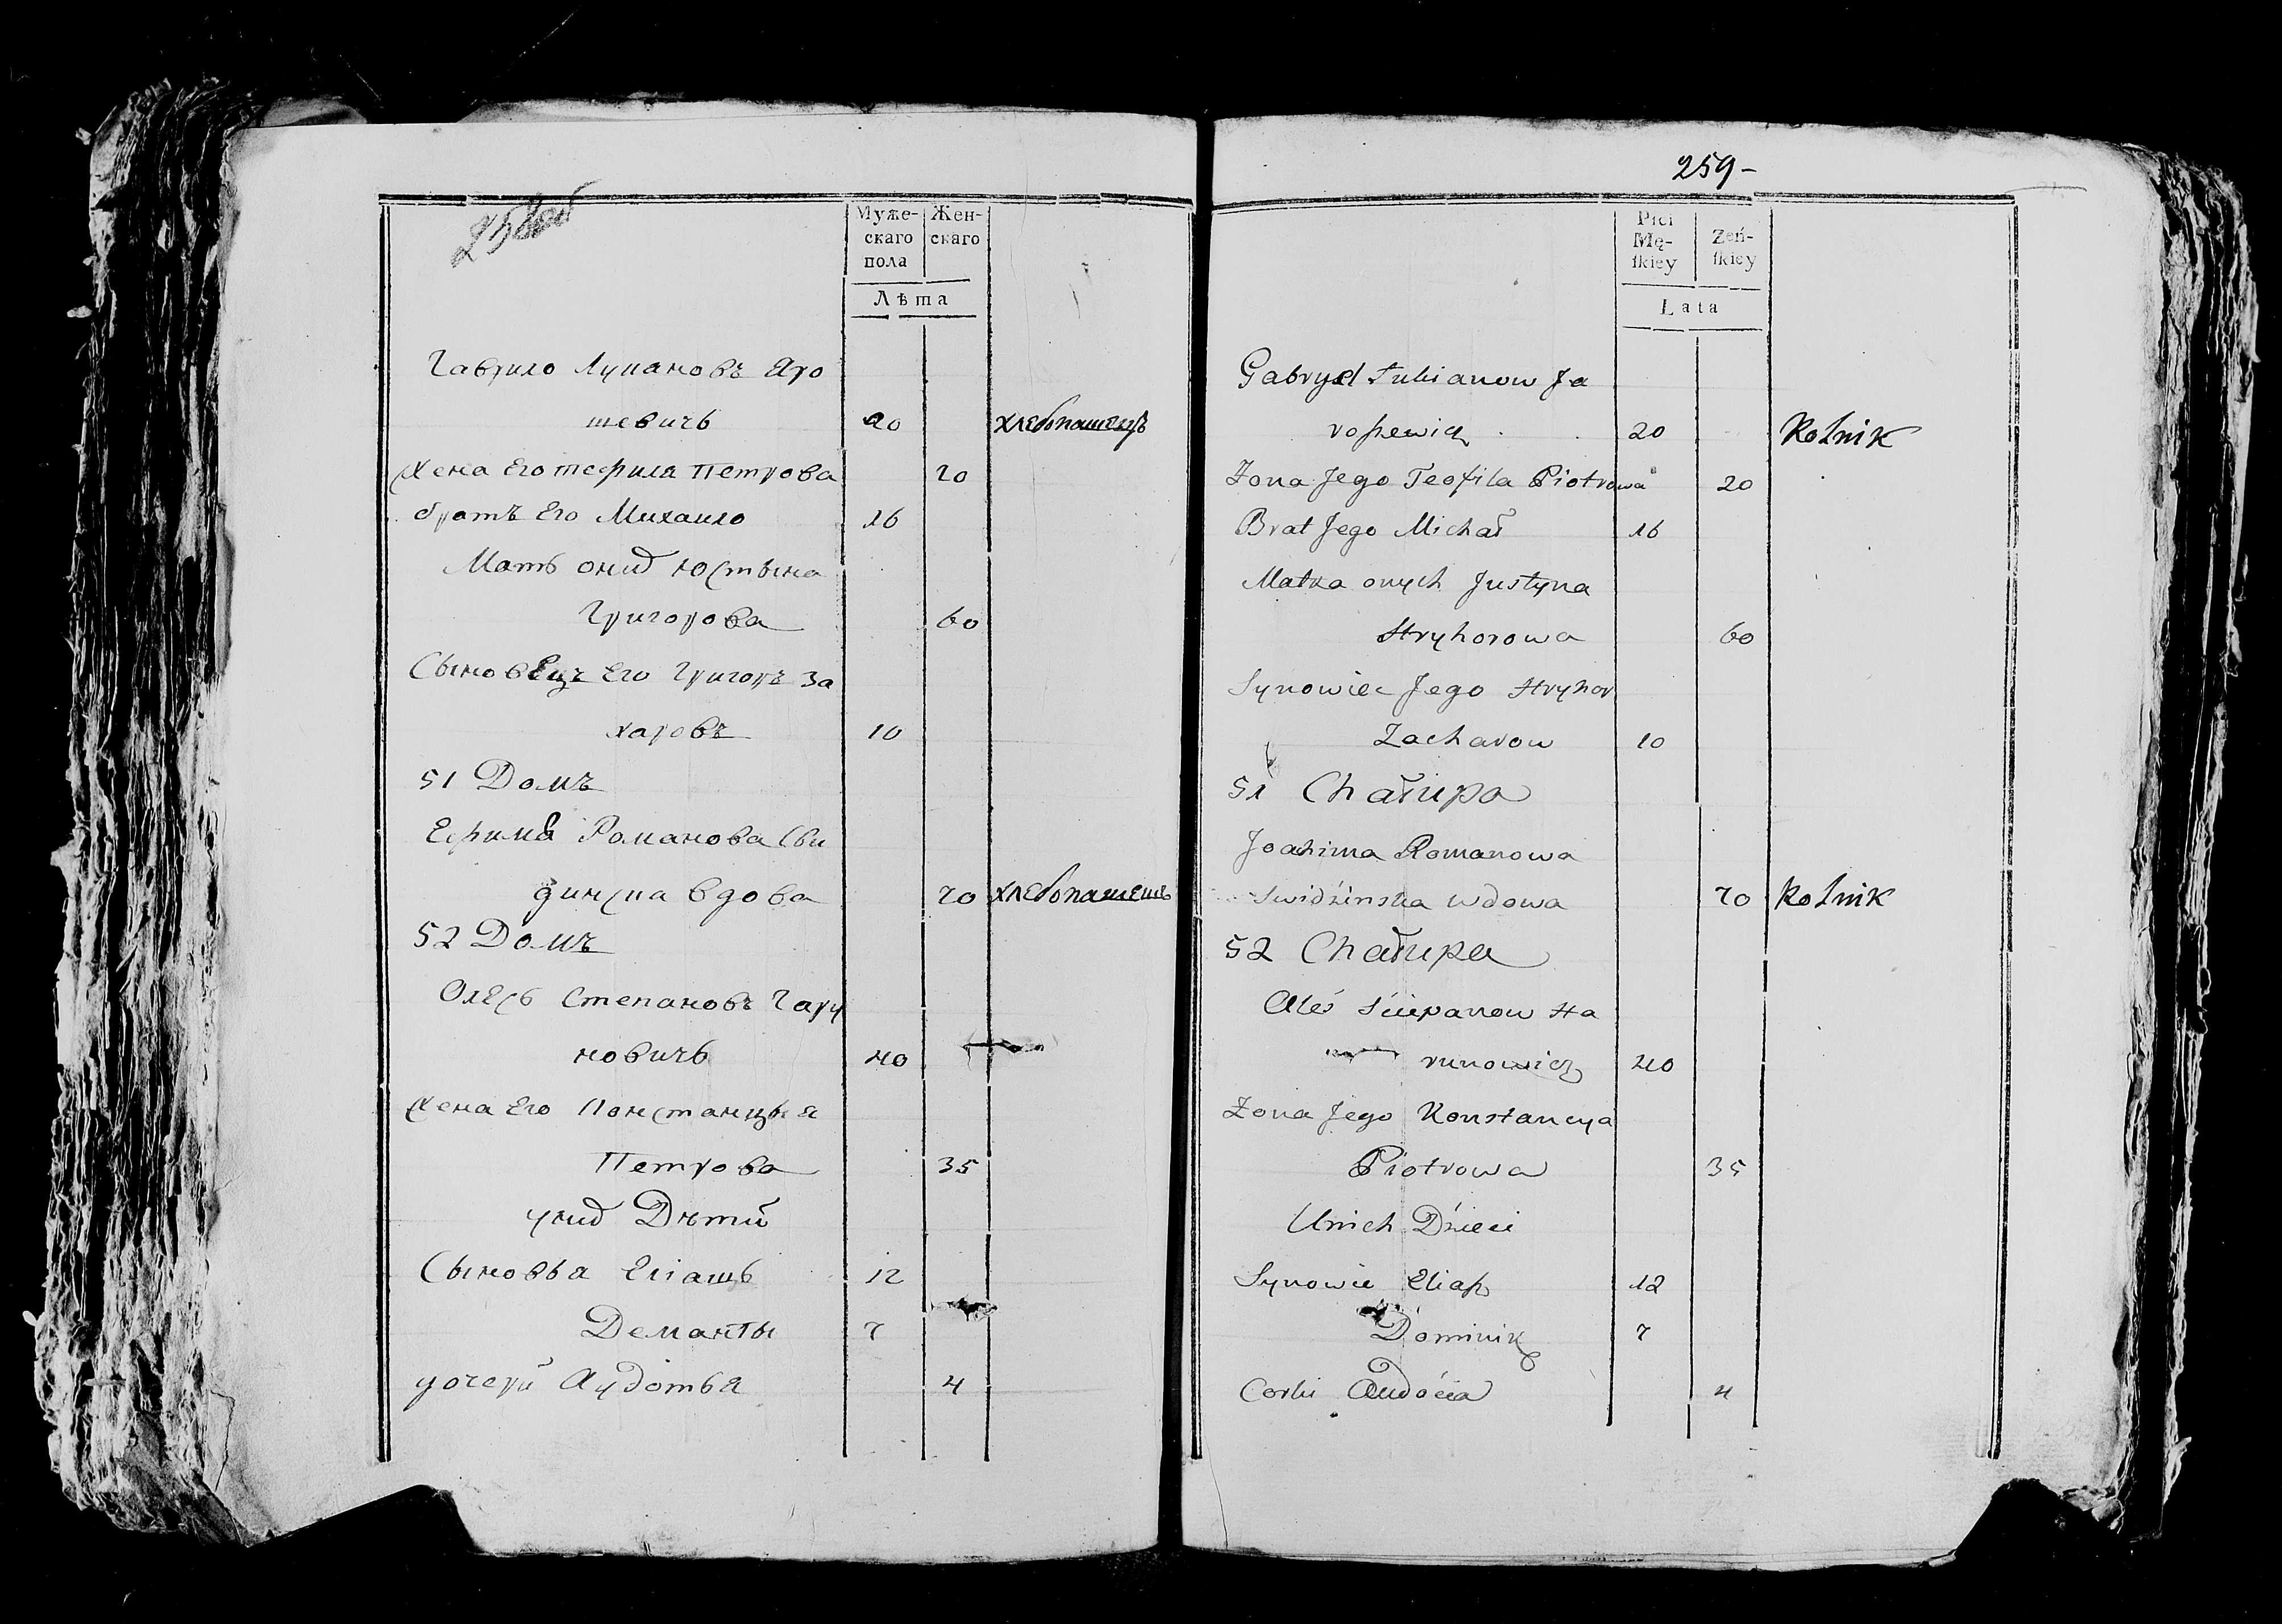 Муже-
скаго
пола
Жен-
скаго
Лѣта
Гаврило Лукановъ Яро
шевичь 20 хлебопашецъ
Жена Его тефиля Петрова 20
братъ Его Михаило 16
Мать оных Юстына
Григорова 60
Сыновецъ Его Григоръ За
харовъ 10
51 Домъ
Романова Сви
динска вдова 70 хлебопашецъ
52 Домъ
Олесь Степановъ Гару
новичь 40
Жена Его Констанцыя
Петрова 35
уних Дѣти
Сыновья Еліашь 12
7
дочери Аудотья 4
259-
Płci
Mę-
ſkiey
Żeń-
ſkiey
Lata
Gabryel Łukianow Ja
roszewicz 20 Rolnik
Żona Jego Teofila Piotrowa 20
Brat Jego Michał 16
Matka onych Justyna
Hryhorowa 60
Synowiec Jego Hryhor
Zacharow 10
51 Chałupa
Joahima Romanowa
Swidźinska wdowa 70 Rolnik
52 Chałupa
Aleś Sciepanow Ha
runowicz 40
Żona Jego Konstancya
Piotrowa 35
Unich Dzieci
Synowie Eliasz 12
Dominik 7
Corki Audocia 4